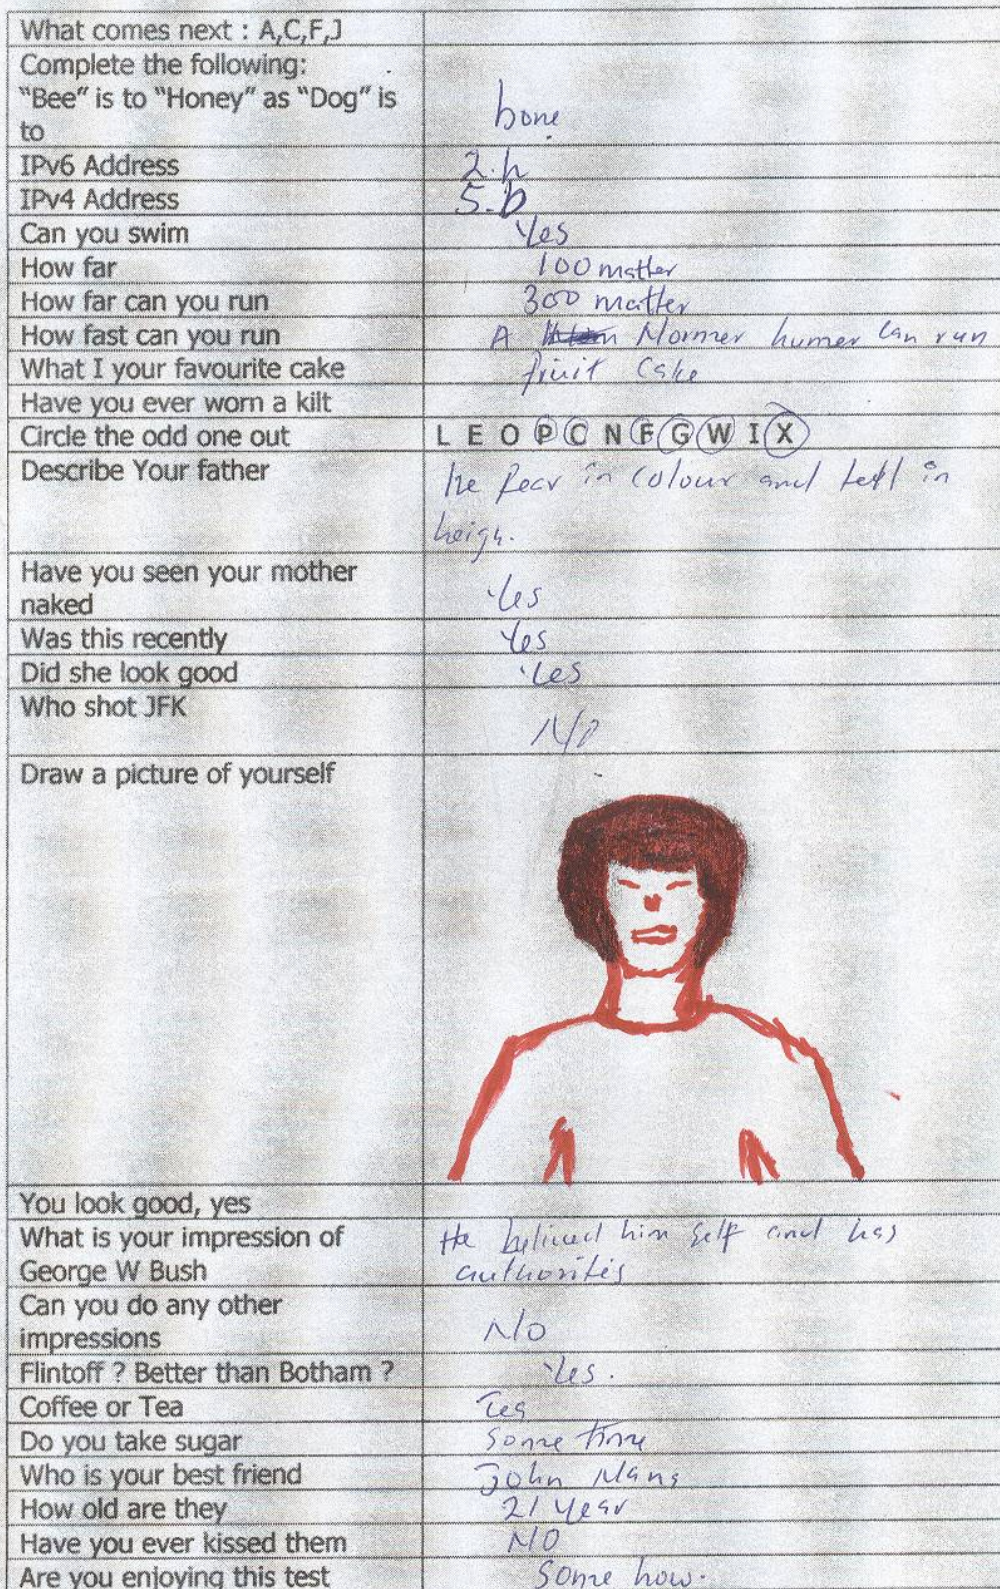 What comes next : A,C,F,J
Complete the following:
"Bee" is to "Honey" as "Dog" is
to
bone
IPv6 Address 2.h
IPv4 Address 5.b
Can you swim Yes
How far 100 matter
How far can you run 300 matter
How fast can you run A Normer humer can run
What I your favourite cake fruit cake
Have you ever worn a kilt
Circle the odd one out L E O P C N F G W I X
Describe Your father he fear in colour and tall in
heigh.
Have you seen your mother
naked
Yes
Was this recently Yes
Did she look good Yes
Who shot JFK
No
Draw a picture of yourself
You look good, yes
What is your impression of He belived him self and has
George W Bush authoritis
Can you do any other
impressions No
Flintoff ? Better than Botham ? Yes.
Coffee or Tea Tea
Do you take sugar Some time
Who is your best friend John
How old are they 21 year
Have you ever kissed them NO
Are you enjoying this test Some how.